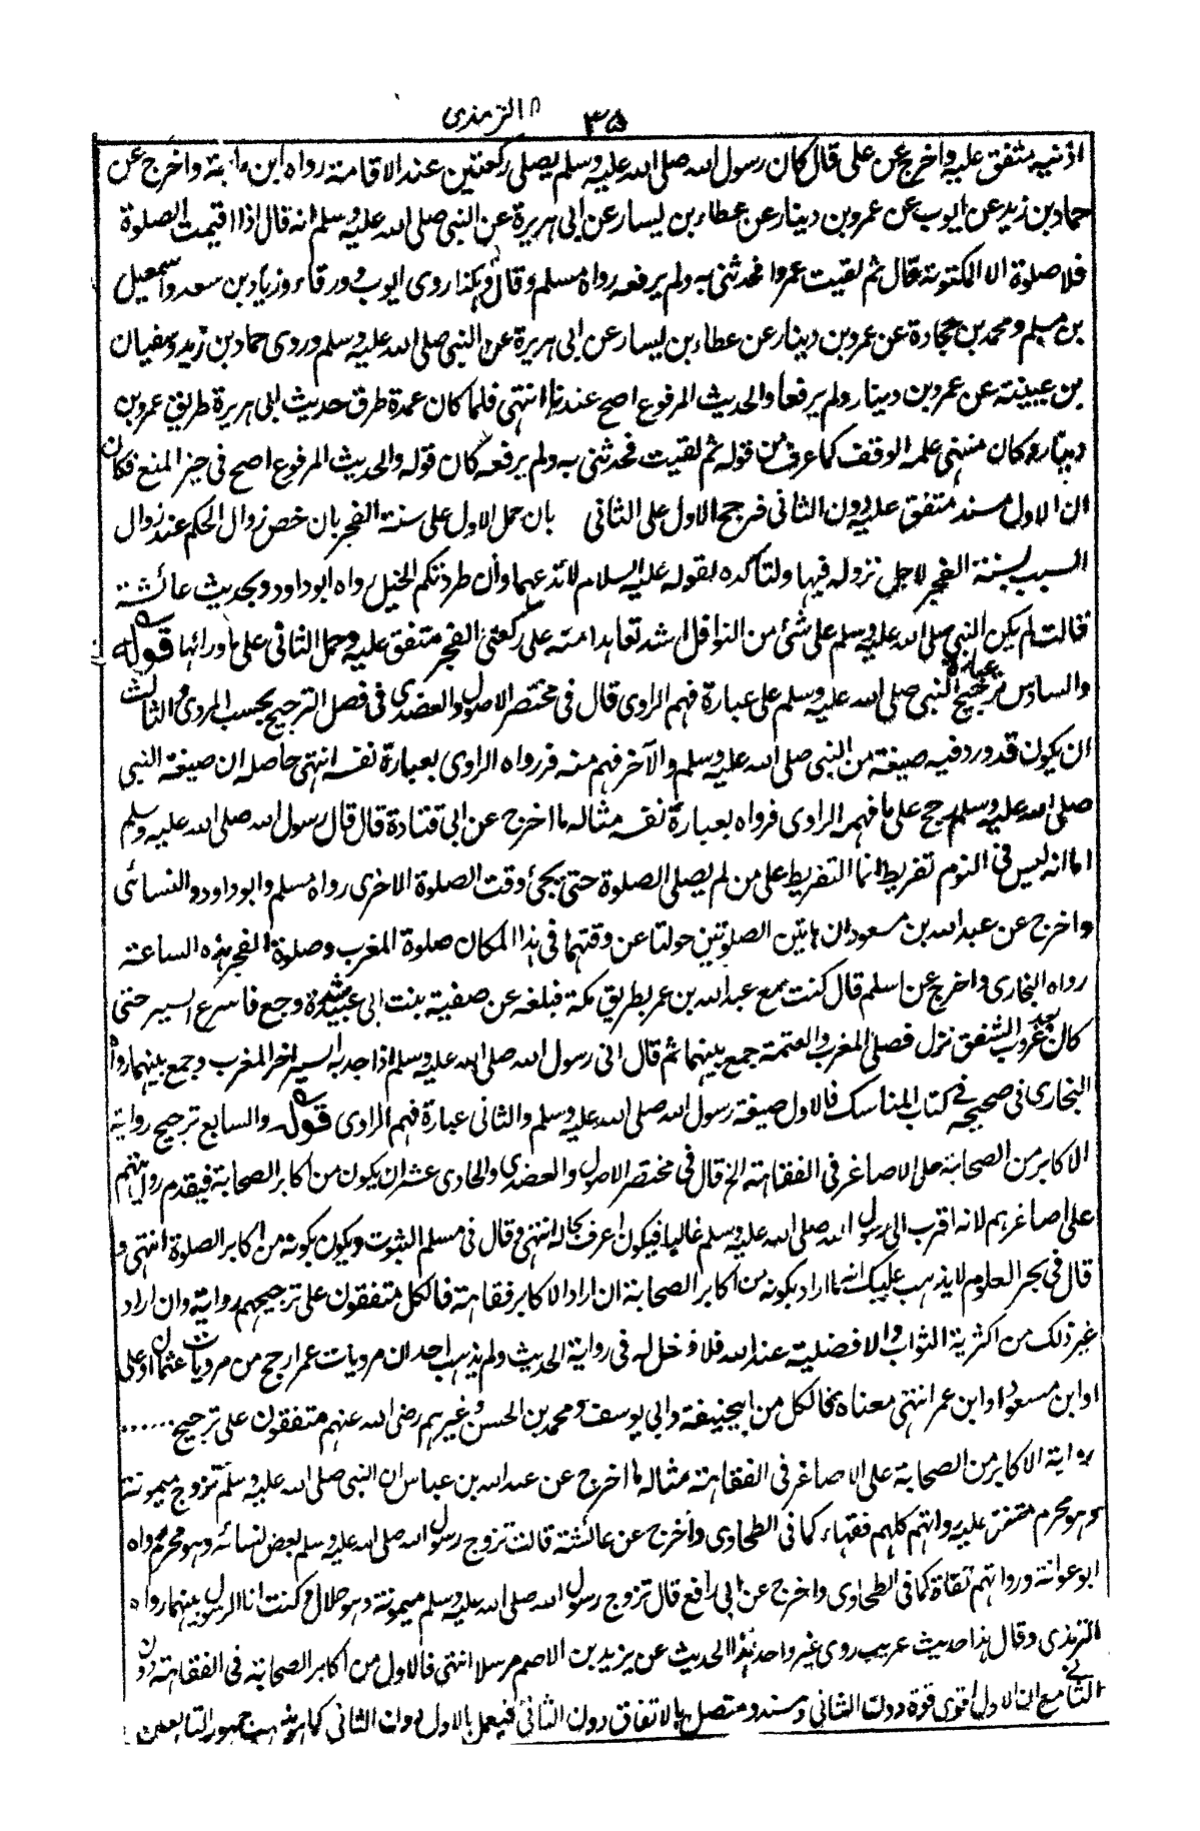 ۳۵ الترمذى
اذنيه متفق عليه واخرج عن على قال كان رسول الله صلى الله عليه وسلم يصلى ركعتين عند الاقامة رواه ابن ماجة واخرج عن
حماد بن زيد عن ايوب عن عمرو بن دينار عن عطاء بن يسار عن ابى هريرة عن النبى صلى الله عليه وسلم انه قال اذا اقيمت الصلوة
فلا صلوة الا المكتوبة قال ثم لقيت عمروا فحدثنى به ولم يرفعه رواه مسلم وقال وهكذا روى ايوب وورقاء وزياد بن سعد واسمعيل
بن مسلم ومحمد بن جحادة عن عمرو بن دينار عن عطاء بن يسار عن ابى هريرة عن النبى صلى الله عليه وسلم وروى حماد بن زيد وسفيان
بن عيينة عن عمرو بن دينار ولم يرفعا والحديث المرفوع اصح عندنا انتهى فلما كان عمدة طرق حديث ابى هريرة طريق عمرو بن
دينار وكان منتهى علمه الوقف كما عرف من قوله ثم لقيت فحدثنى به ولم يرفعه كان قوله والحديث المرفوع اصح فى حيز المنع فكان
ان الاول مسند متفق عليه دون الثانى فرجح الاول على الثانى بان حمل الاول على سنة الفجر بان خص زوال الحكم عند زوال
السبب بسنة الفجر لاجل نزوله فيها ولتأكده لقوله عليه السلام لا تدعهما وان طردتكم الخيل رواه ابو داود وبحديث عائشة
قالت لم يكن النبى صلى الله عليه وسلم على شئ من النوافل اشد تعاهدا منه على ركعتى الفجر متفق عليه وحمل الثانى على ما ورائها قوله
والسادس ترجيح عبارة النبى صلى الله عليه وسلم على عبارة فهم الراوى قال فى مختصر الاصول والعضدى فى فصل الترجيح بحسب المروى والثالث
ان يكون قد ورد فيه صيغة من النبى صلى الله عليه وسلم والآخر فهم منه فرواه الراوى بعبارة نفسه انتهى حاصله ان صيغة النبى
صلى الله عليه وسلم رجح على ما فهمه الراوى فرواه بعبارة نفسه مثاله ما اخرج عن ابى قتادة قال قال رسول الله صلى الله عليه وسلم
اما انه ليس فى النوم تفريط انما التفريط على من لم يصلى الصلوة حتى يجئ وقت الصلوة الاخرى رواه مسلم وابو داود والنسائى
واخرج عن عبد الله بن مسعود ان هاتين الصلوتين حولتا عن وقتهما فى هذا المكان صلوة المغرب وصلوة الفجر هذه الساعة
رواه البخارى واخرج عن اسلم قال كنت مع عبد الله بن عمر بطريق مكة فبلغه عن صفية بنت ابى عبيد شدة وجع فاسرع السير حتى
كان بعد غروب الشفق نزل فصلى المغرب والعتمة جمع بينهما ثم قال انى رسول الله صلى الله عليه وسلم اذا جد به السير اخر المغرب وجمع بينهما رواه
البخارى فى صحيحه فى كتاب المناسك فالاول صيغة رسول الله صلى الله عليه وسلم والثانى عبارة فهم الراوى قوله والسابع ترجيح رواية
الاكابر من الصحابة على الاصاغر فى الفقاهة الخ قال فى مختصر الاصول والعضدى والحادى عشر ان يكون من اكابر الصحابة فيقدم روايتهم
على اصاغرهم لانه اقرب الى رسول الله صلى الله عليه وسلم غالبا فيكون اعرف بحاله انتهى وقال فى مسلم الثبوت ويكون بكونه من اكابر الصلوة انتهى و
قال فى بحر العلوم لا يذهب عليك انه ما اراد بكونه من اكابر الصحابة ان اراد الاكابر فقاهة فالكل متفقون على ترجيحهم رواية وان اراد
غير ذلك من اكثرية الثواب والافضلية عند الله فلا دخل له فى رواية الحديث ولم يذهب احد ان مرويات عمر ارجح من مرويات عثمان او على
او ابن مسعود او ابن عمر انتهى معناه فالكل من ابيحنيفة وابى يوسف ومحمد بن الحسن وغيرهم رضى الله عنهم متفقون على ترجيح .....
رواية الاكابر من الصحابة على الاصاغر فى الفقاهة مثاله ما اخرج عن عبد الله بن عباس ان النبى صلى الله عليه وسلم تزوج ميمونة
وهو محرم متفق عليه رواتهم كلهم فقهاء كما فى الطحاوى واخرج عن عائشة قالت تزوج رسول الله صلى الله عليه وسلم بعض نسائه وهو محرم رواه
ابو عوانة ورواتهم ثقاة كما فى الطحاوى واخرج عن ابى رافع قال تزوج رسول الله صلى الله عليه وسلم ميمونة وهو حلال وكنت انا الرسول بينهما رواه
الترمذى وقال هذا حديث غريب روى غير واحد هذا الحديث عن يزيد بن الاصم مرسلا انتهى فالاول من اكابر الصحابة فى الفقاهة دون
الثانى مع ان الاول اقوى قوة دون الثانى ومسند ومتصل بالاتفاق دون الثانى فيعمل بالاول دون الثانى كما هو مذهب جمهور التابعين